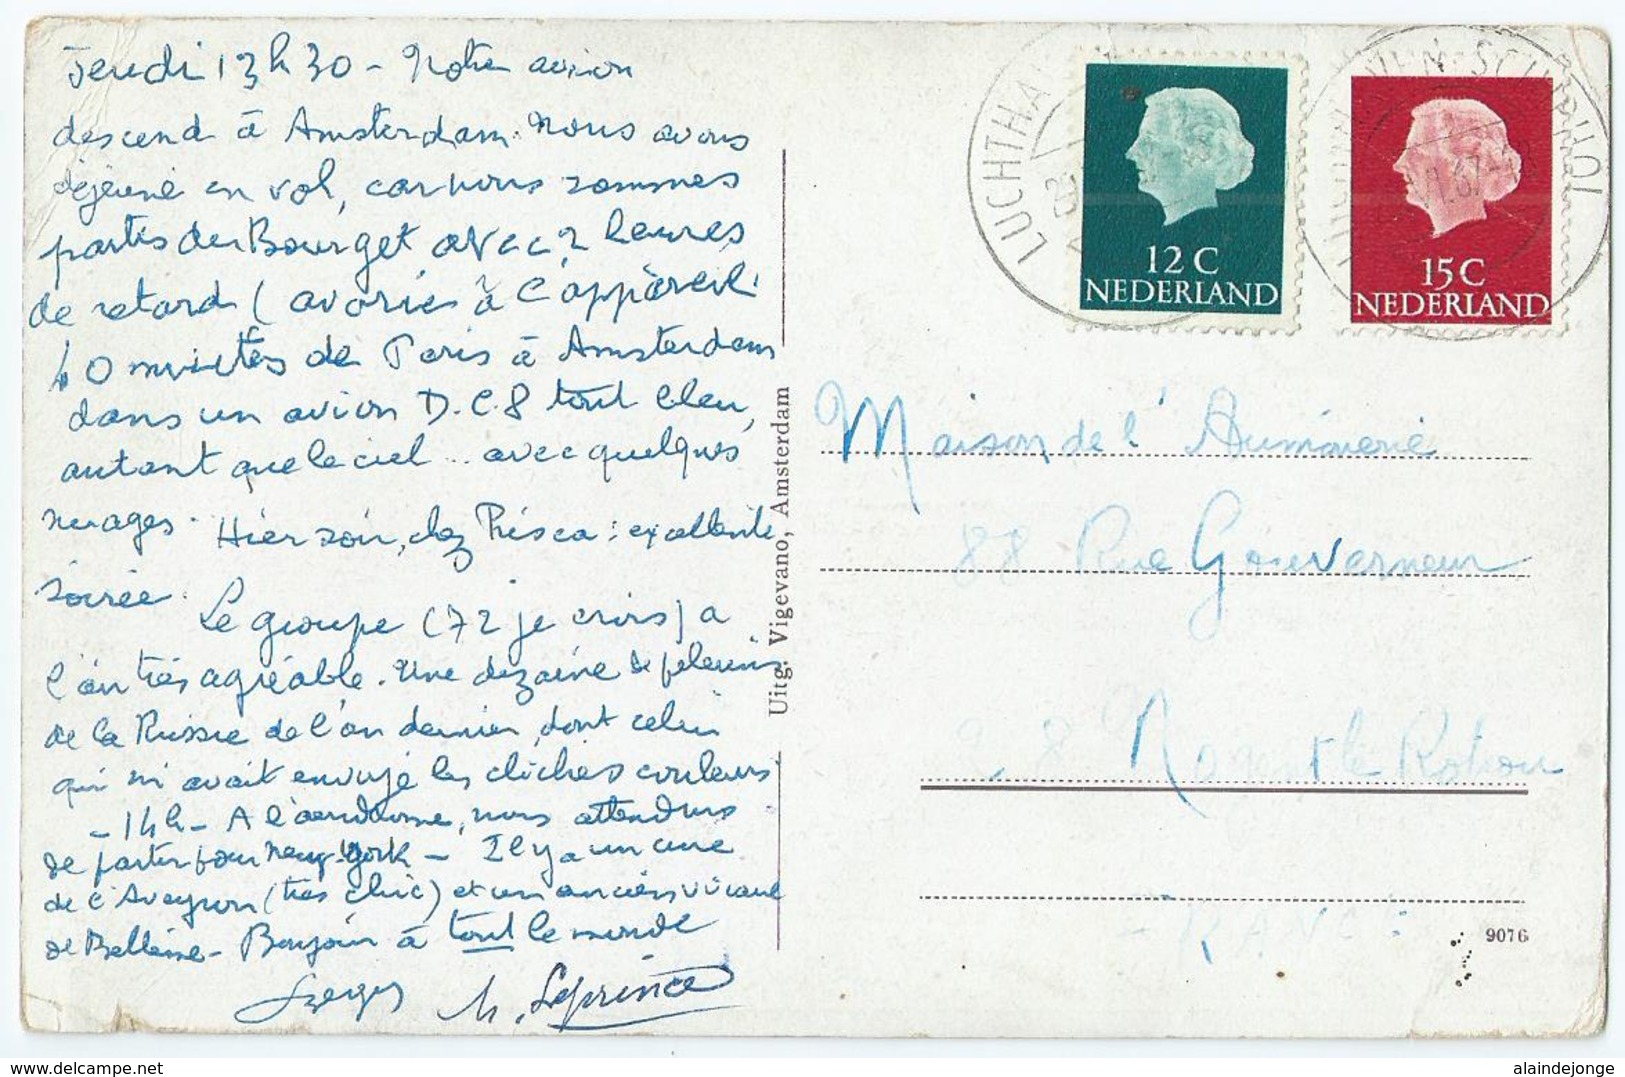 Jeudi 13h30 - Notre avion
descend à Amsterdam. Nous avons
déjeuné en vol, car nous sommes
partis du Bourget avec 2 heures
de retard (avaries à l'appareil.
40 minutes de Paris à Amsterdam
dans un avion D.C.8 tout bleu,
autant que le ciel... avec quelques
nuages. Hier soir, chez Prisca : excellente
soirée. Le groupe (72 je crois) a
l'air très agréable. Une dizaine de pélerins
de la Russie de l'an dernier, dont celui
qui m'avait envoyé les clichés couleurs
- 14h - A l'aérodrome, nous attendons
de partir pour New-York - Il y a un curé
de l'Aveyron (très chic) et un ancien vicaire
de Bellême - Bonjour à tout le monde
Serges M. Leprince
Uitg. Vigevano, Amsterdam
LUCHTHAVEN SCHIPHOL
12 C
NEDERLAND
15 C
NEDERLAND
Maison de l'Aumônerie
88 Rue Gouverneur
28 Nogent le Rotrou
FRANCE
9076
alaindejonge